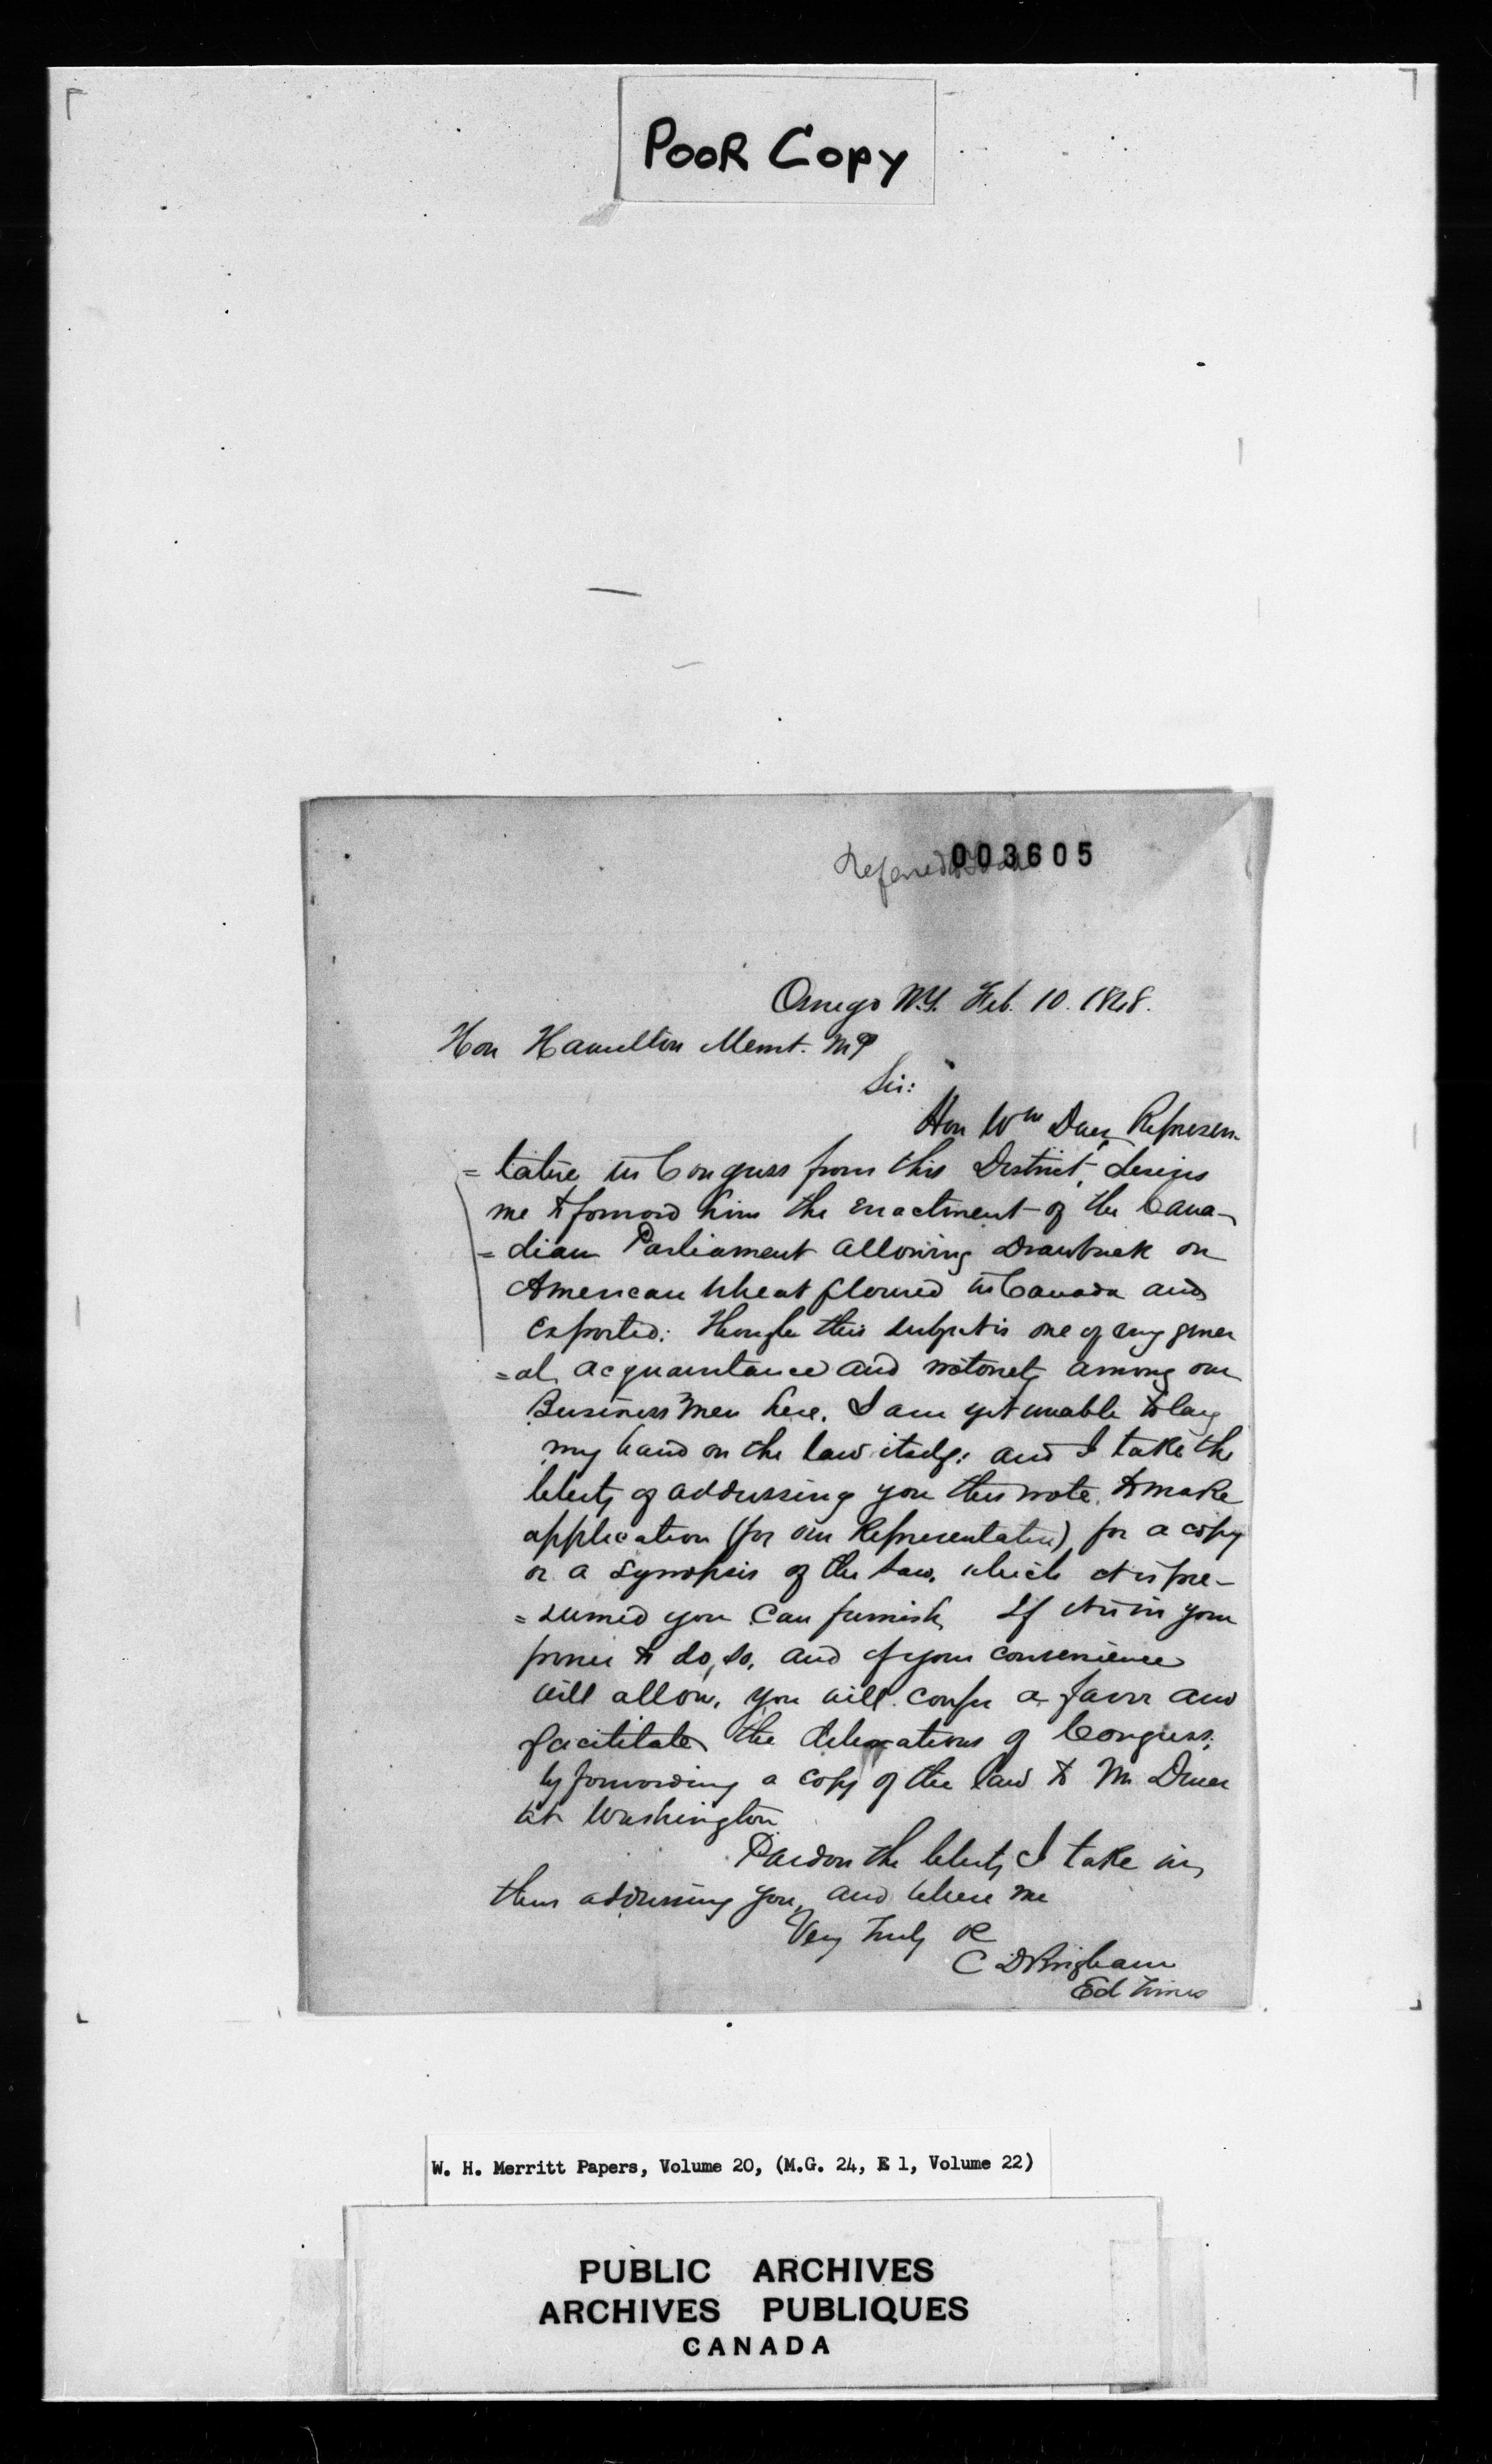 POOR COPY
Referred
003605
Oswego N.Y. Feb. 10. 1848.
Hon Hamilton Merritt. MP
Sir:
Hon Wm Duer, Represen-
=tative in Congress from this District, desires
me to forward him the enactment of the Cana-
=dian Parliament allowing drawback on
American wheat floured in Canada and
exported: Though this subject is one of very gener
=al, acquaintance and notoriety among our
Business men here, I am yet unable to lay
my hand on the law itself: and I take the
liberty of addressing you this note, to make
application (for our Representative) for a copy
or a synopsis of the law, which it is pre-
=sumed you can furnish, If it is in your
power to do, so, and if your convenience
will allow, you will confer a favor and
facilitate the deliberations of Congress,
by forwarding a copy of the law to Mr Duer
at Washington.
Pardon the liberty I take in,
thus addressing you, and believe me
Very Truly &c
C D Brigham
Ed Times
W. H. Merritt Papers, Volume 20, (M.G. 24, E 1, Volume 22)
PUBLIC ARCHIVES
ARCHIVES PUBLIQUES
CANADA